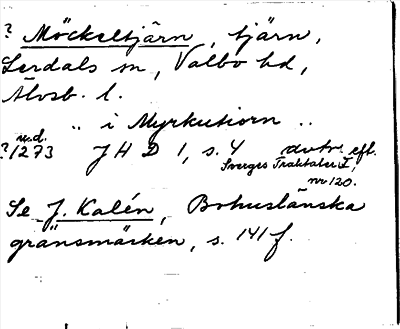 ? Möckeltjärn, tjärn,
Lerdals sn, Valbo hd,
Älvsb. l.
.. i Myrkutiorn ..
u.d.
?1273 JHD 1, s. 4 avtr. efl.
Sverges Traktater I,
nr 120.
Se J. Kalén, Bohuslänska
gränsmärken, s. 141 f.